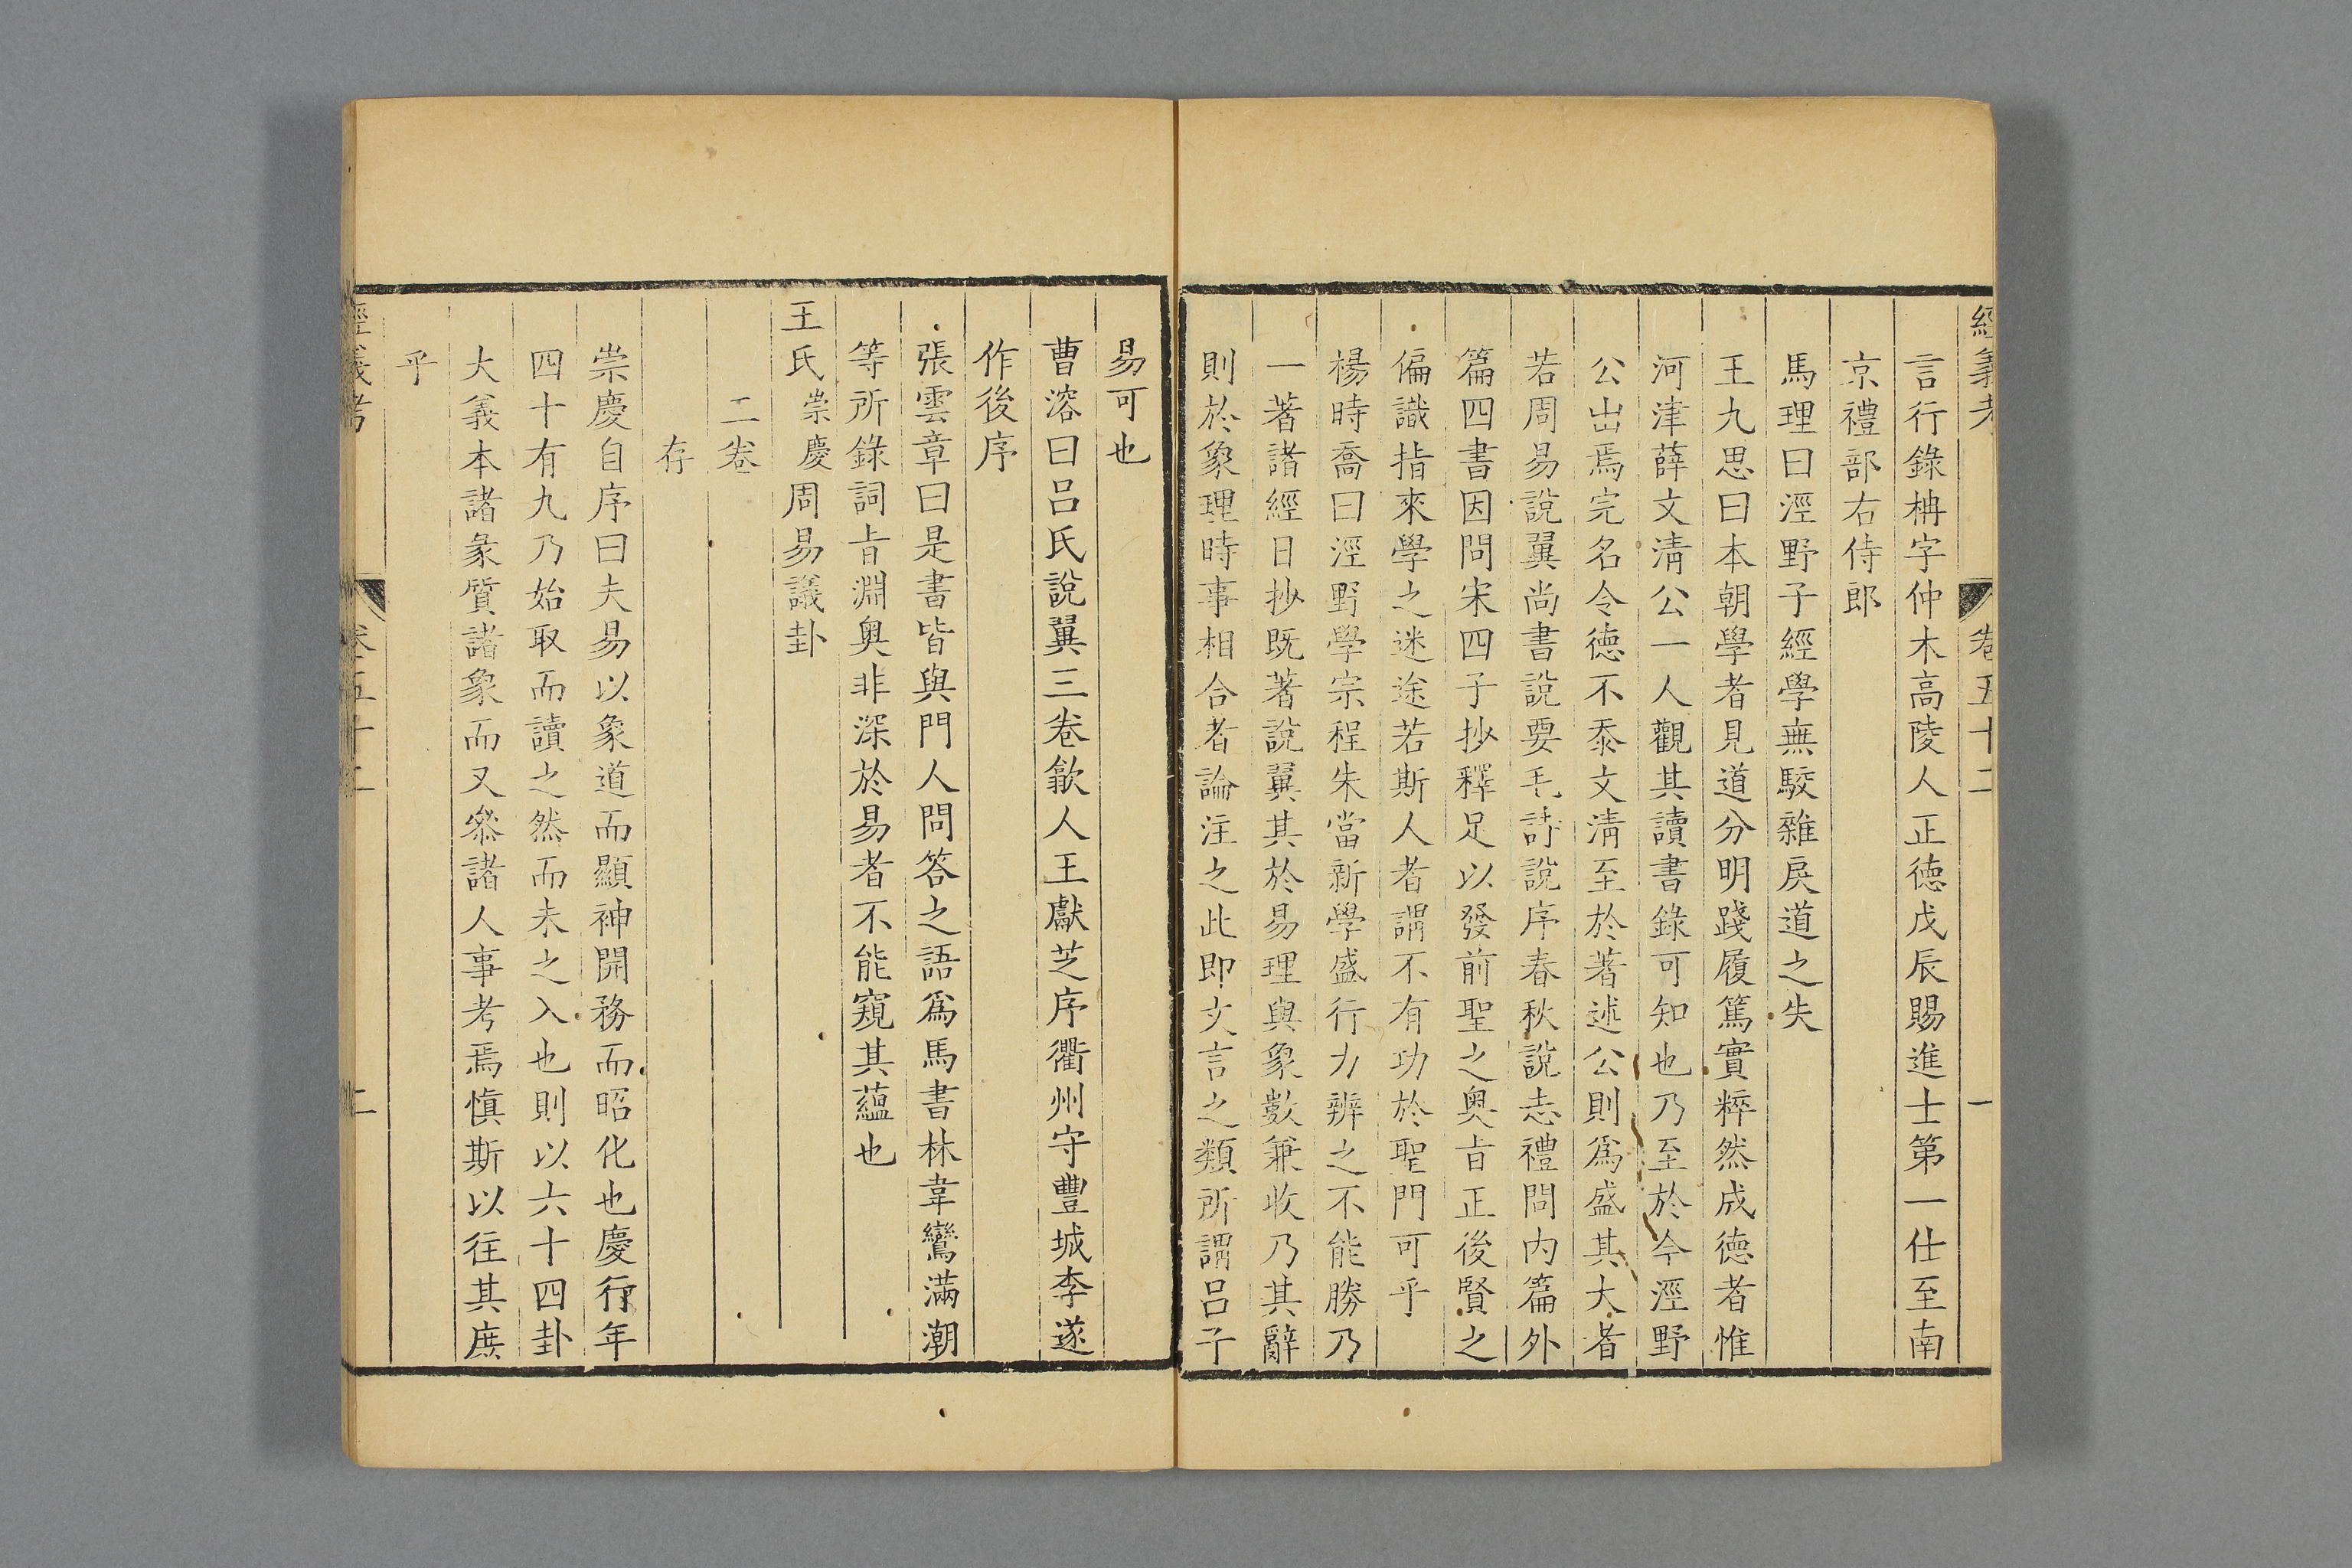 經義考 卷五十二 一
言行錄柟字仲木高陵人正德戊辰賜進士第一仕至南
京禮部右侍郎
馬理曰涇野子經學無駁雜戾道之失
王九思曰本朝學者見道分明踐履篤實粹然成德者惟
河津薛文清公一人觀其讀書錄可知也乃至於今涇野
公出焉完名令德不忝文清至於著述公則爲盛其大者
若周易說翼尚書說要毛詩說序春秋說志禮問內篇外
篇四書因問宋四子抄釋足以發前聖之奥旨正後賢之
偏識指來學之迷途若斯人者謂不有功於聖門可乎
楊時喬曰涇野學宗程朱當新學盛行力辨之不能勝乃
一著諸經日抄既著說翼其於易理與象數兼收乃其辭
則於象理時事相合者論注之此即文言之類所謂吕子
易可也
曹溶曰吕氏說翼三卷歙人王獻芝序衢州守豐城李遂
作後序
張雲章曰是書皆與門人問答之語爲馬書林韋鸞滿潮
等所錄詞旨淵奥非深於易者不能窺其蘊也
王氏崇慶周易議卦
二卷
存
崇慶自序曰夫易以象道而顯神開務而昭化也慶行年
四十有九乃始取而讀之然而未之入也則以六十四卦
大義本諸彖質諸象而又叅諸人事考焉愼斯以往其庶
乎
經義考 卷五十二 二